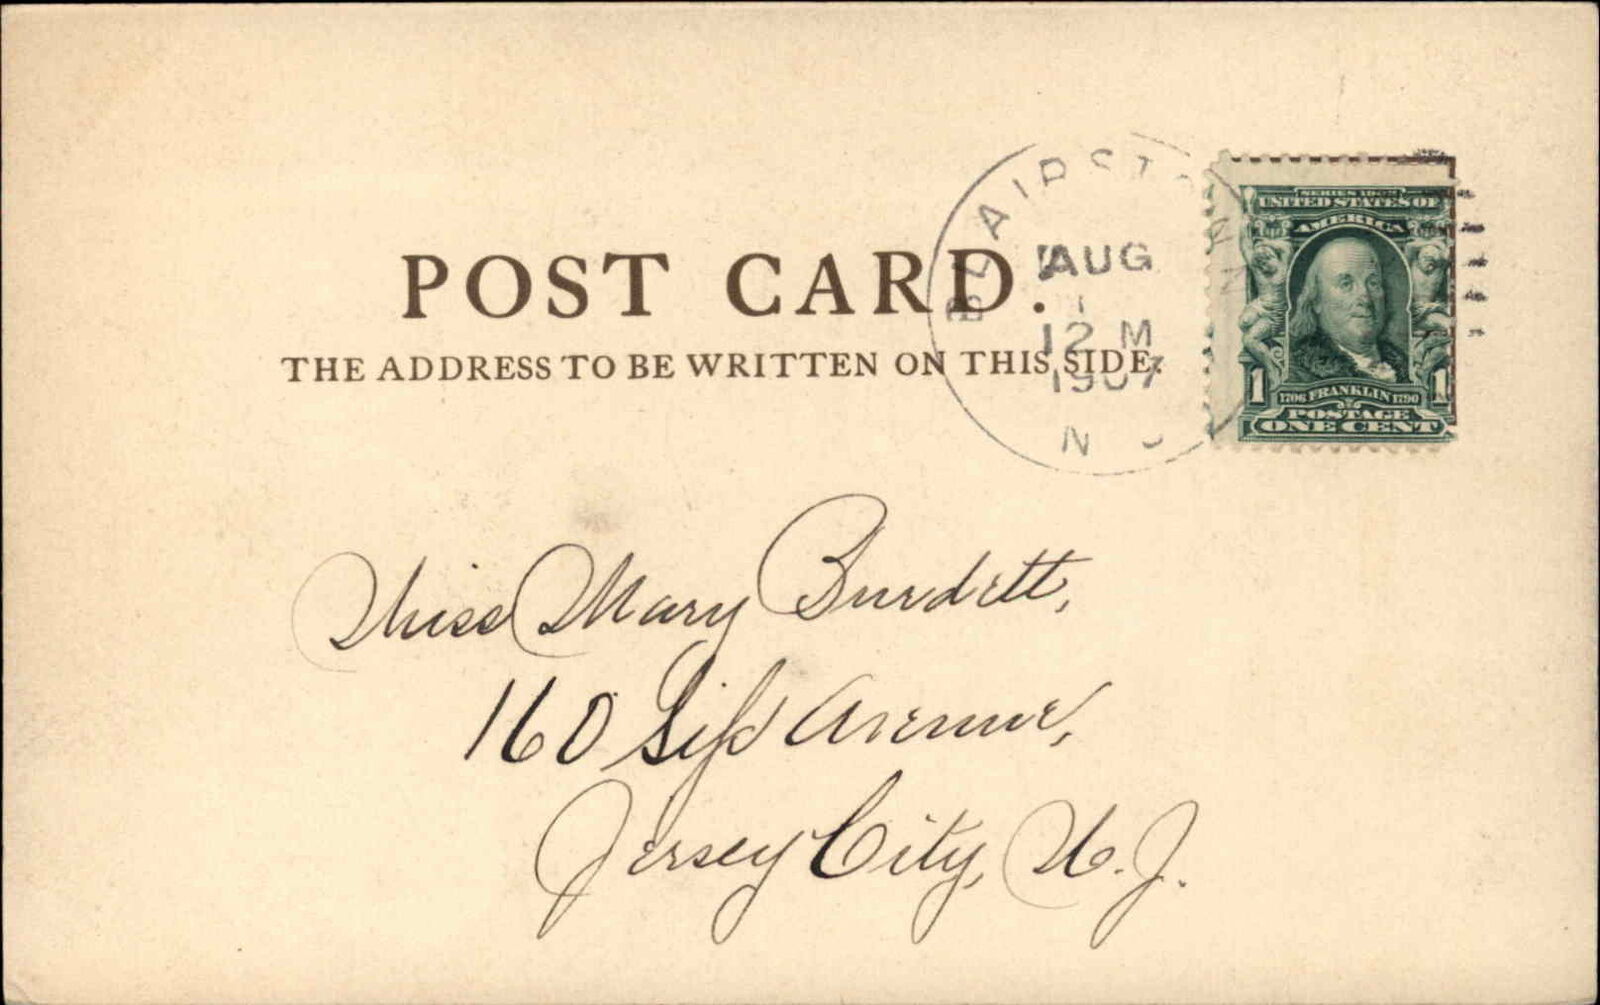 BLAIRSTOWN
AUG
1
12 M
1907
N J
SERIES 1902
UNITED STATES OF
AMERICA
1 1706 FRANKLIN 1790 1
POSTAGE
ONE CENT
POST CARD.
THE ADDRESS TO BE WRITTEN ON THIS SIDE.
Miss Mary Burdett,
160 Sip Avenue,
Jersey City, N. J.